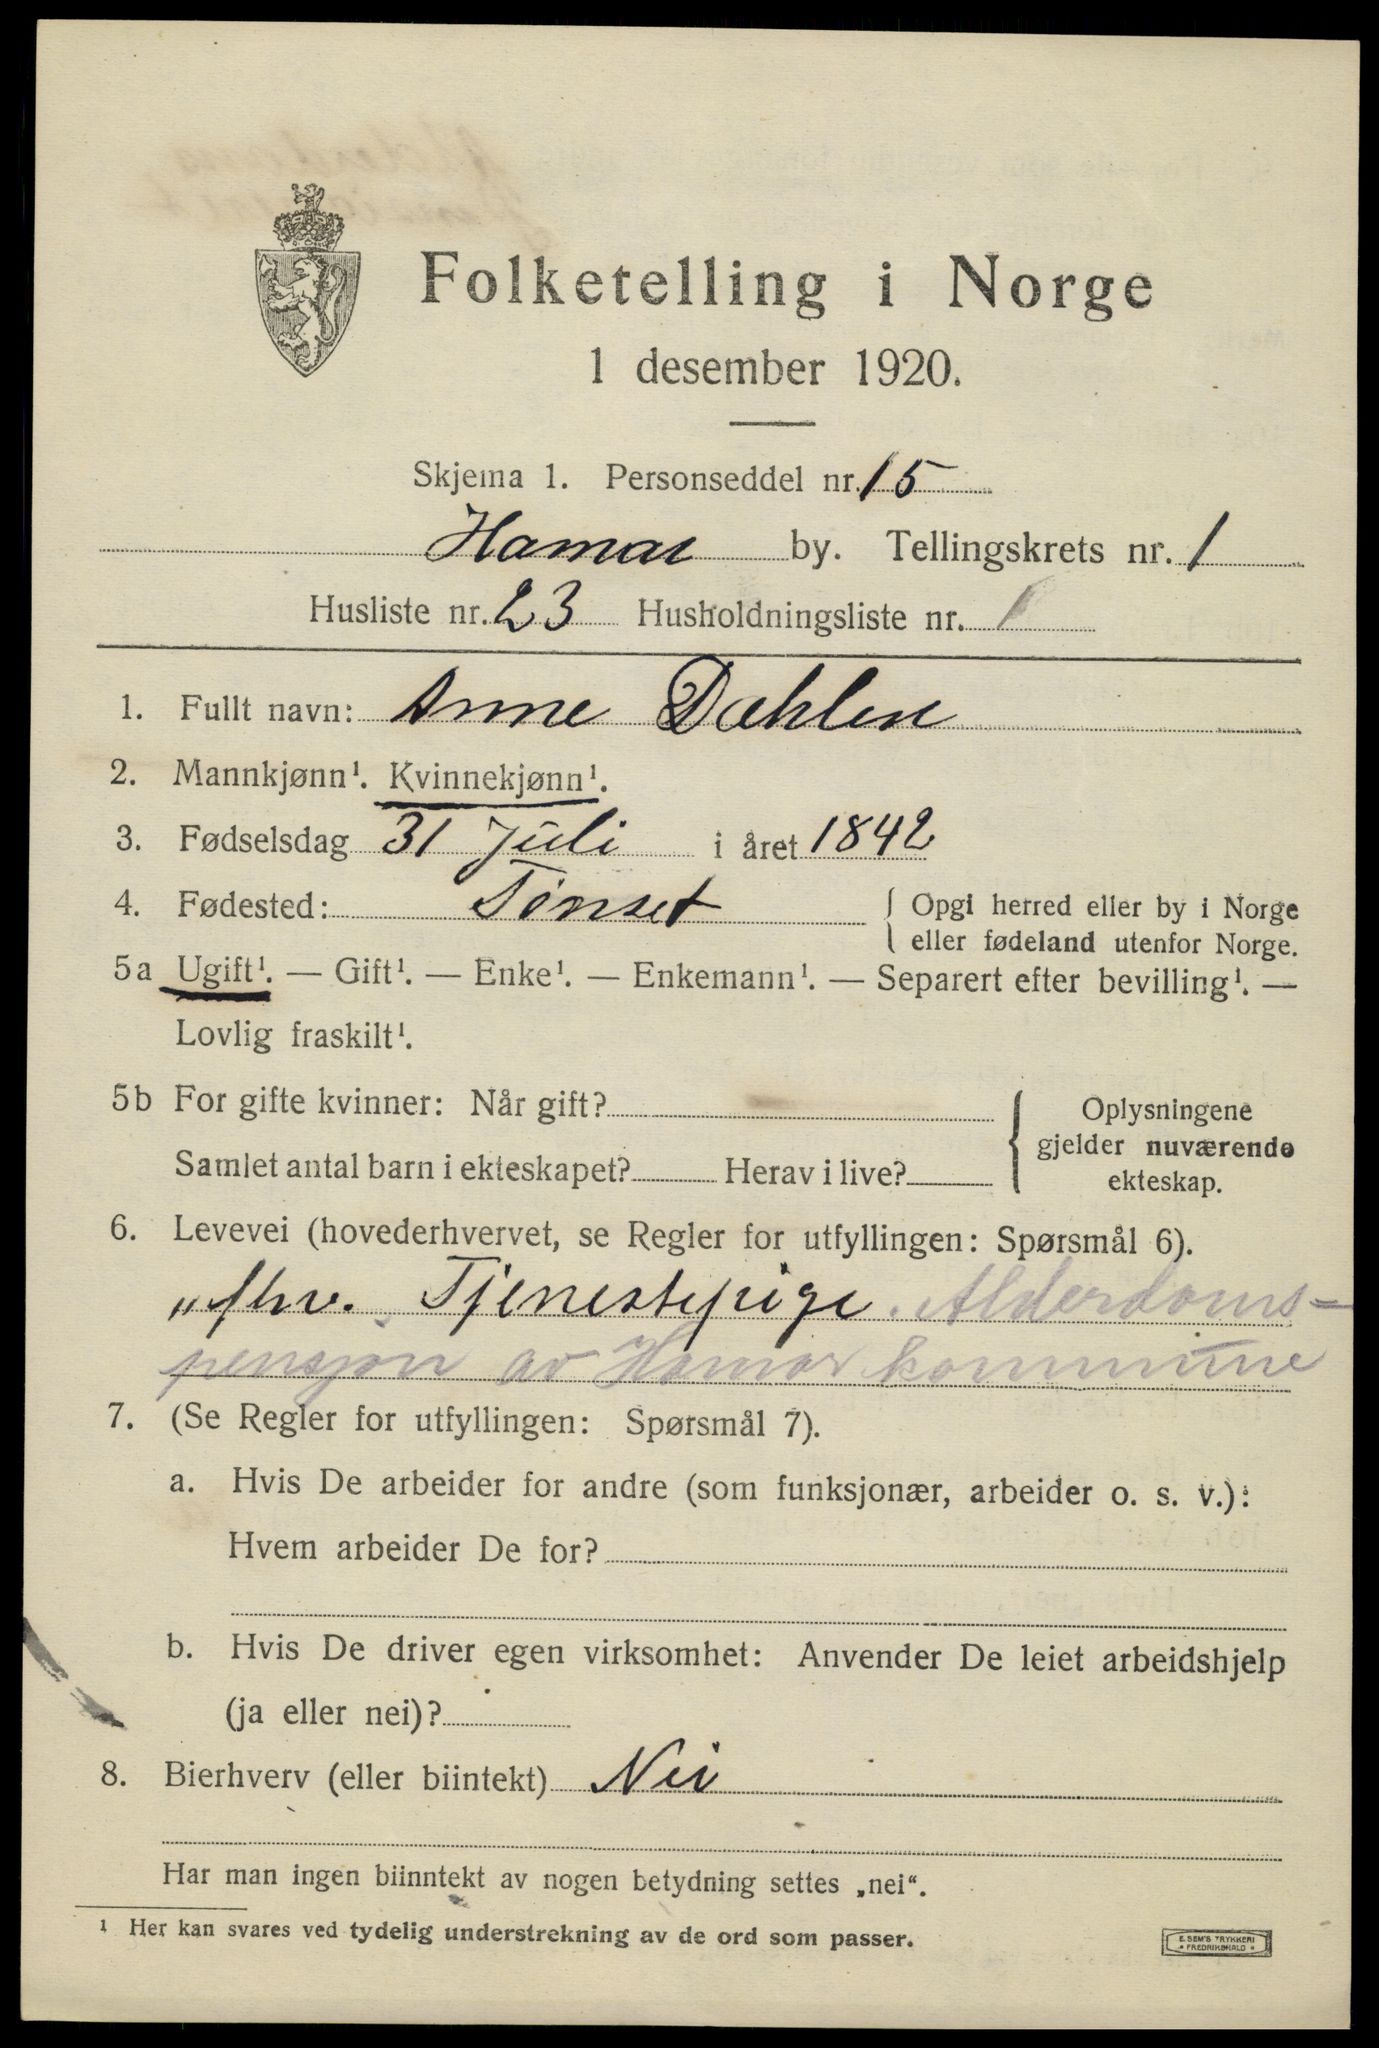 Folketelling i Norge
1 desember 1920.
Skjema 1. Personseddel nr. 15
Hamar by. Tellingskrets nr. 1
Husliste nr. 23 Husholdningsliste nr. 1
1. Fullt navn: Anne Dahlen
2. Mannkjønn¹. Kvinnekjønn¹.
3. Fødselsdag 31 Juli i året 1842
4. Fødested: Tønset { Opgi herred eller by i Norge
eller fødeland utenfor Norge.
5a Ugift¹. — Gift¹. — Enke¹. — Enkemann¹. — Separert efter bevilling¹. —
Lovlig fraskilt¹.
5b For gifte kvinner: Når gift? { Oplysningene
gjelder nuværende
Samlet antal barn i ekteskapet? Herav i live?
ekteskap.
6. Levevei (hovederhvervet, se Regler for utfyllingen: Spørsmål 6).
Tjenestepige. Alderdoms-
pensjon av Hamar kommune
7. (Se Regler for utfyllingen: Spørsmål 7).
a. Hvis De arbeider for andre (som funksjonær, arbeider o. s. v.):
Hvem arbeider De for?
b. Hvis De driver egen virksomhet: Anvender De leiet arbeidshjelp
(ja eller nei)?
8. Bierhverv (eller biintekt) Nei
Har man ingen biinntekt av nogen betydning settes „nei“.
¹ Her kan svares ved tydelig understrekning av de ord som passer.
E. SEM'S TRYKKERI
FREDRIKSHALD